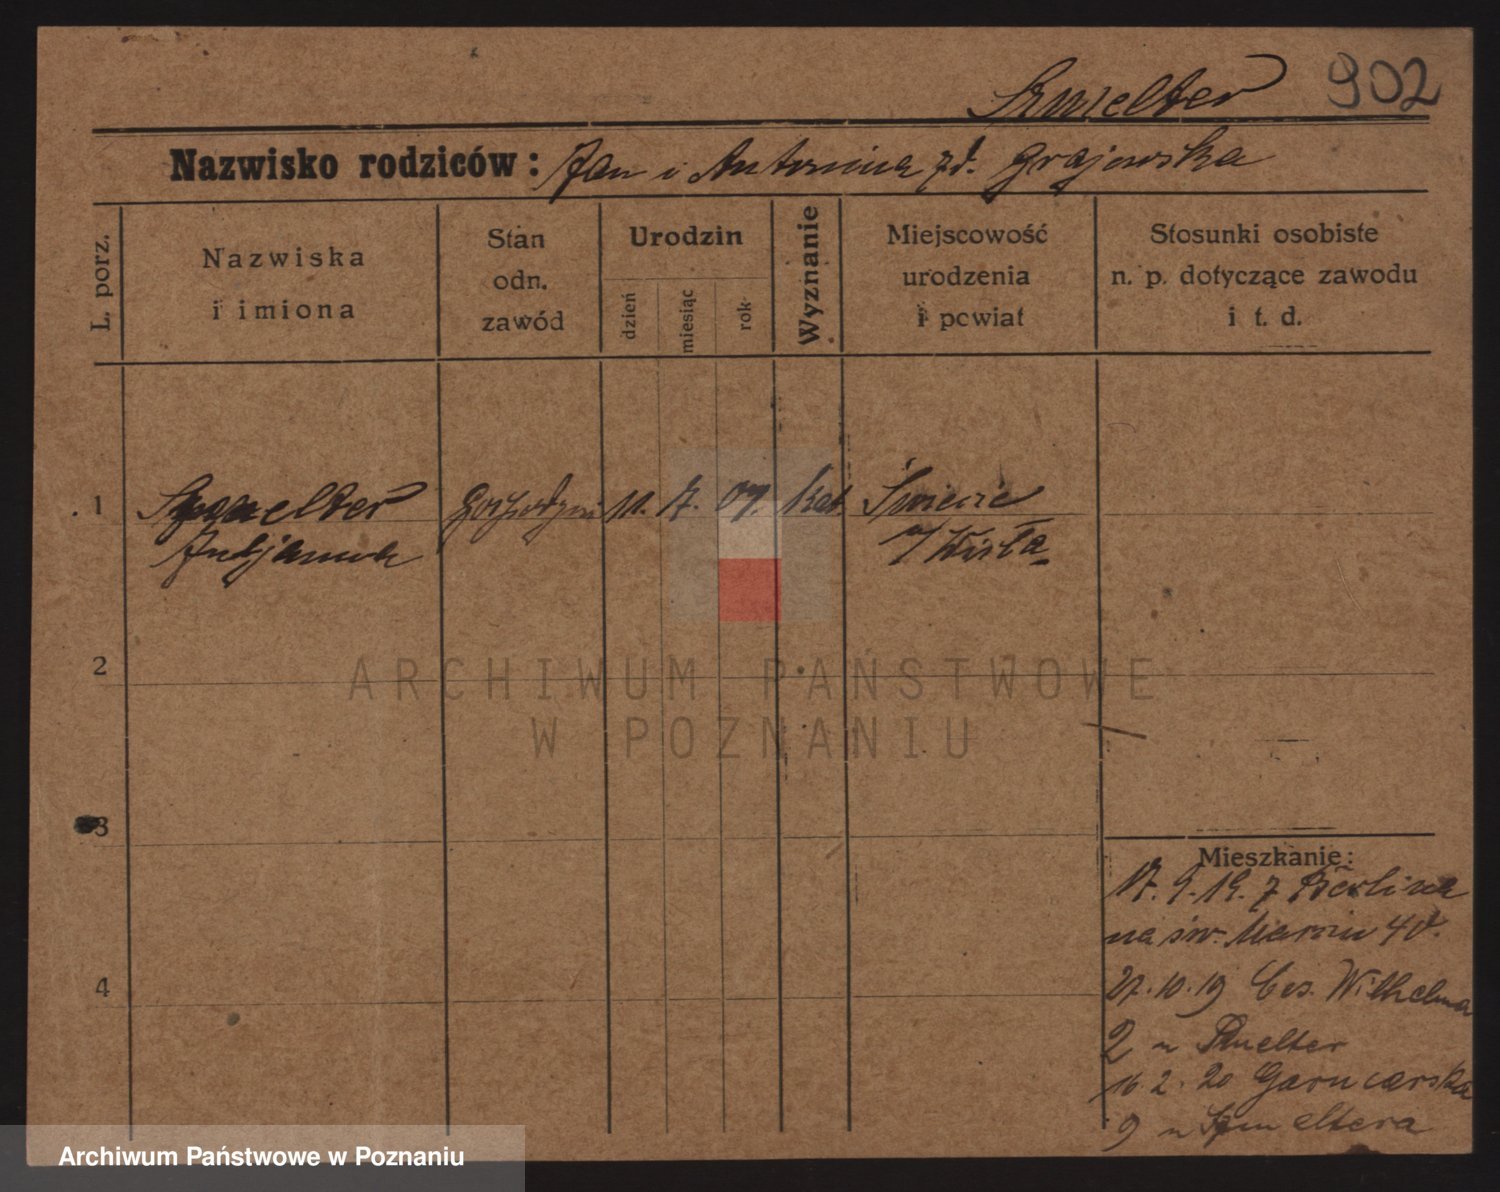 Szmelter 902
Nazwisko rodziców: Jan i Antonina zd. Grajewska
L. porz.
Nazwiska
i imiona
Stan
odn.
zawód
Urodzin
dzień
miesiąc
rok
Wyznanie
Miejscowość
urodzenia
i powiat
Stosunki osobiste
n. p. dotyczące zawodu
i t. d.
1 Szmelter Gospodyni 11. 7. 07. kat Świecie
n/Wisłą
2
ARCHIWUM PAŃSTWOWE
W POZNANIU
3
4
Mieszkanie:
17. 9. 19. z Berlina
na św. Marcin 40.
27. 10. 19 Ces. Wilhelma
2 u Szmelter
16. 2. 20 Garncarska
9 u Szmeltera
Archiwum Państwowe w Poznaniu